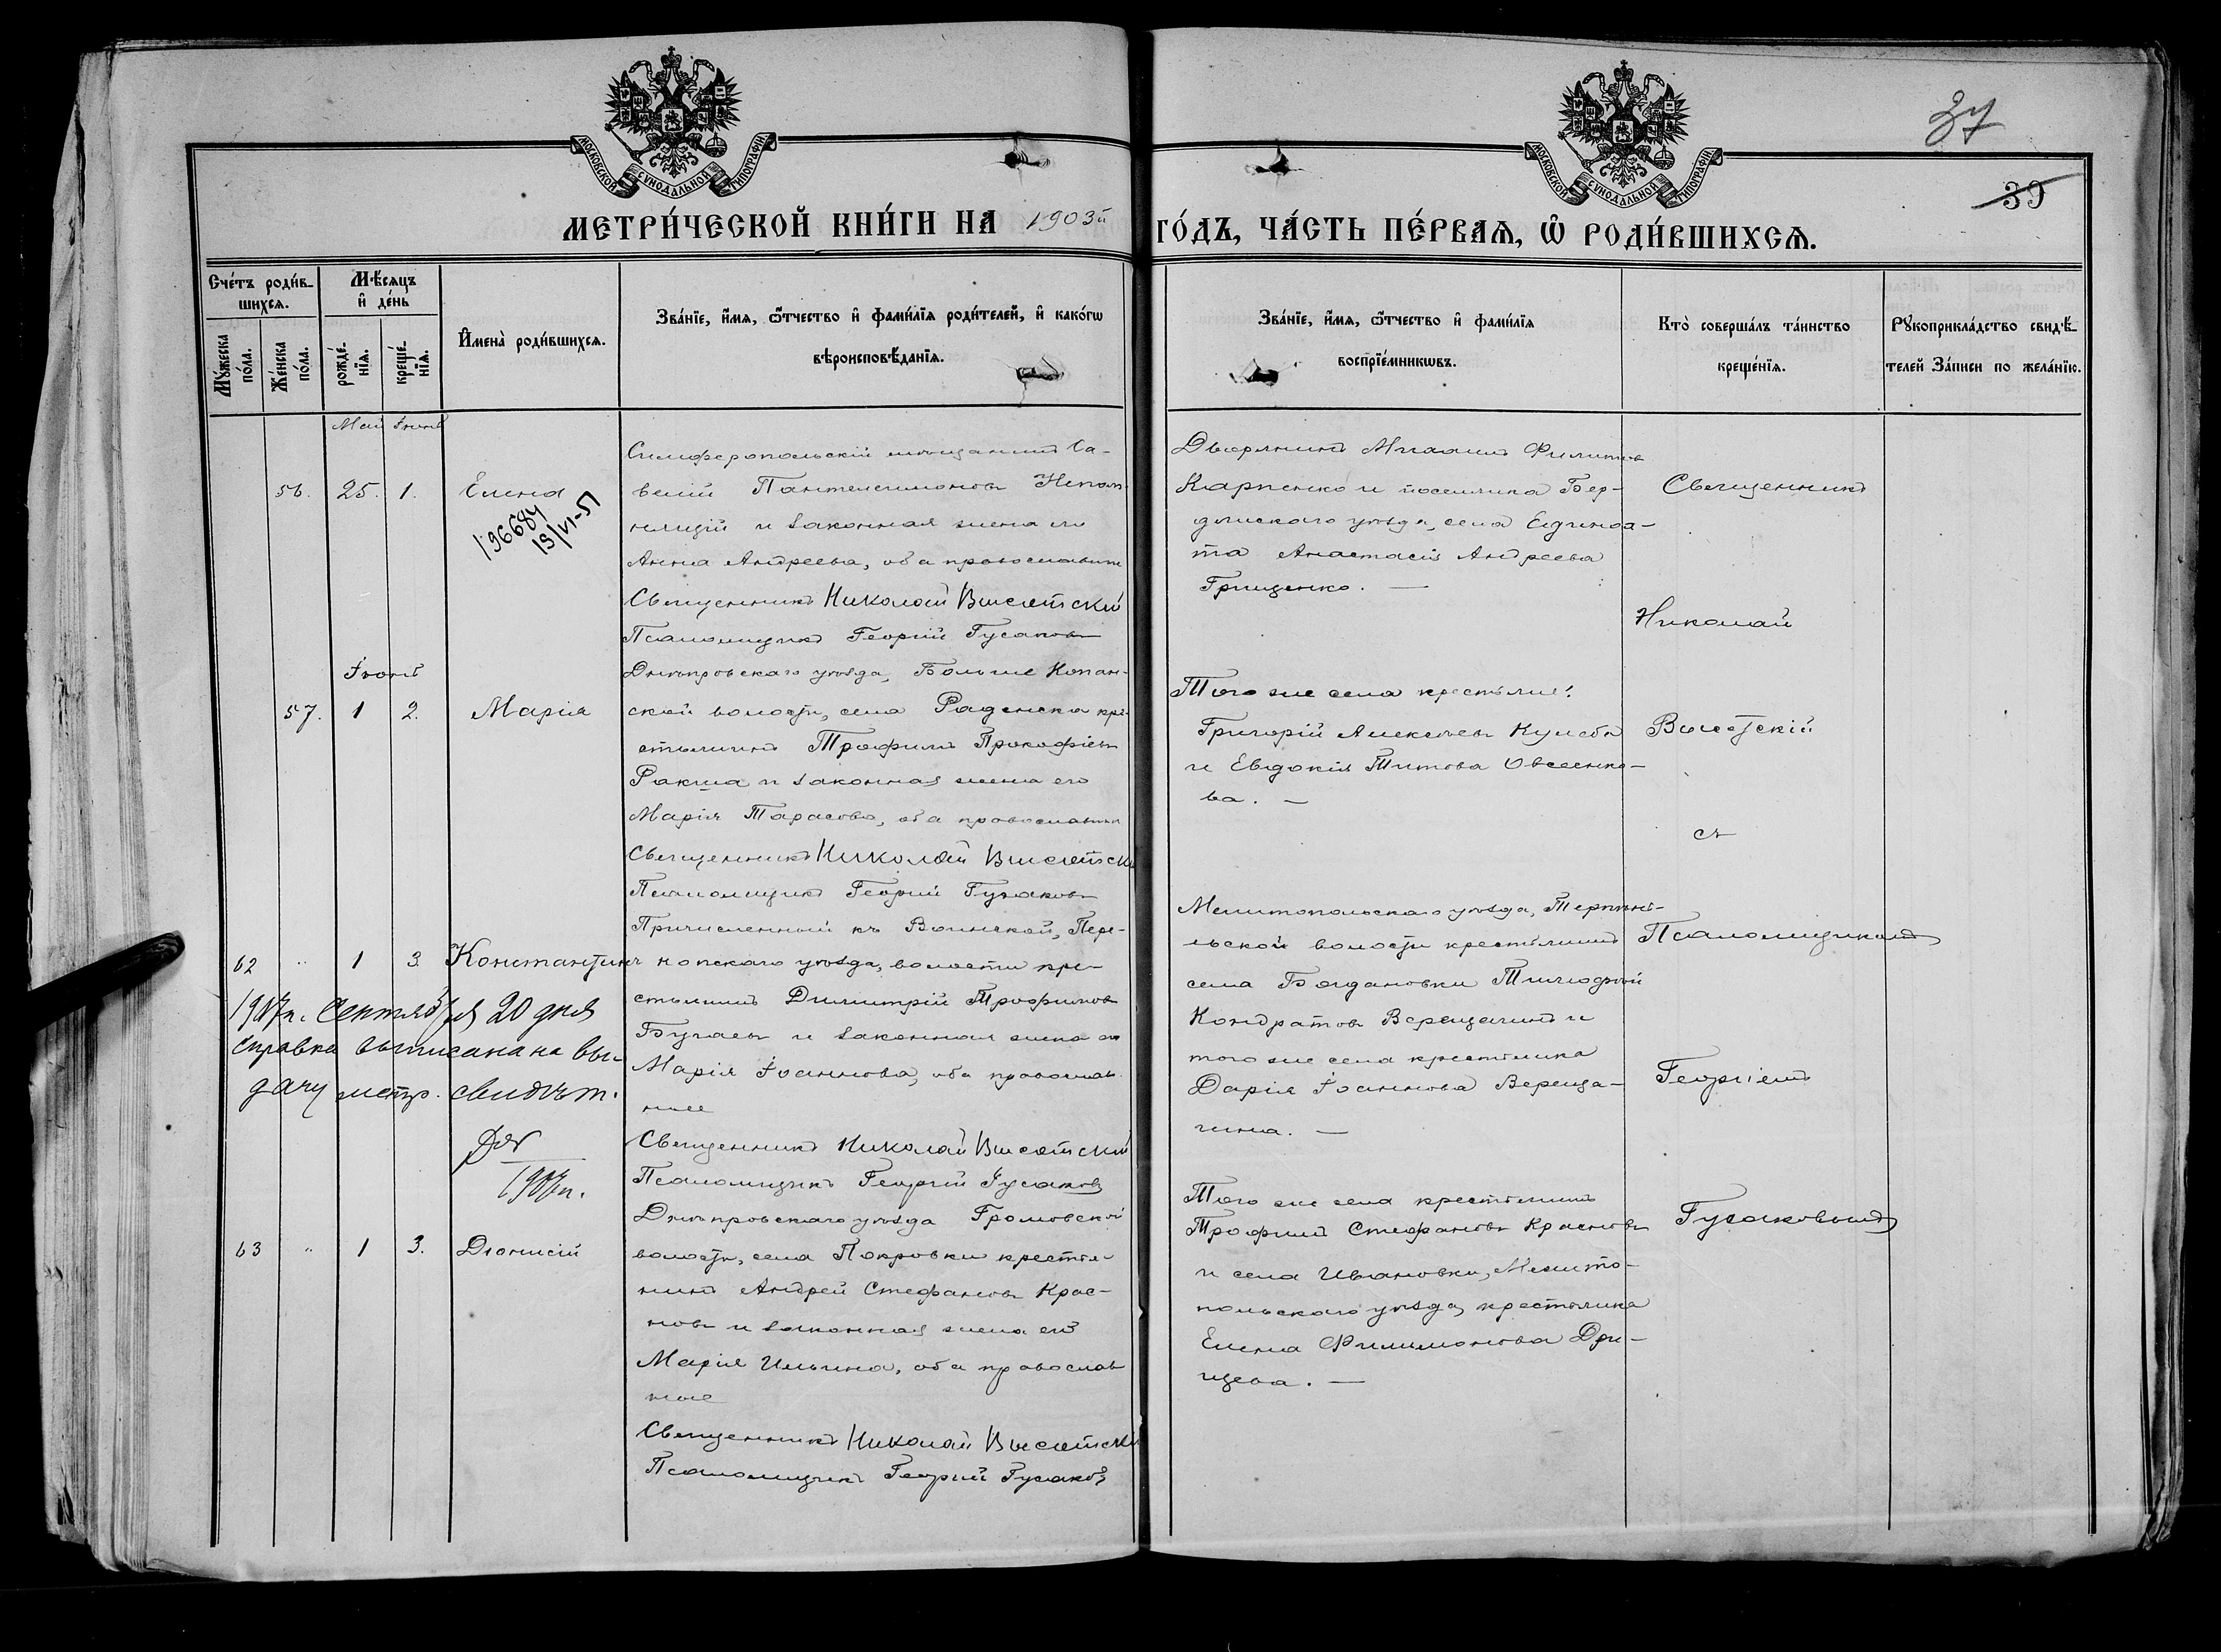 МОСКОВСКОЙ СѴНОДАЛЬНОЙ ТИПОГРАФІИ.
МОСКОВСКОЙ СѴНОДАЛЬНОЙ ТИПОГРАФІИ.
37
39
МЕТРИ́ЧЕСКОЙ КНИ́ГИ НА 1903й ГО́ДЪ, ЧА́СТЬ ПЕ́РВАѦ, Ѡ҆ РОДИ́ВШИХСѦ.
Сче́тъ роди́в-
шихсѧ.
Мꙋ́жеска по́ла.
Же́нска по́ла.
Мѣ́сѧцъ
и҆ де́нь
рожде́-
нїѧ.
креще́-
нїѧ.
И҆мена̀ роди́вшихсѧ.
Зва́нїе, и҆́мѧ, ѻ҆́тчество и҆ фами́лїѧ роди́телей, и҆ како́гѡ
вѣроисповѣ́данїѧ.
Зва́нїе, и҆́мѧ, ѻ҆́тчество и҆ фами́лїѧ
воспрїе́мникѡвъ.
Кто̀ соверша́лъ та́инство
креще́нїѧ.
Рꙋкоприкла́дство свидѣ́-
телей за́писи по жела́нїю.
Май Іюнь
56. 25. 1. Елена
196684
19/VI-51
Симферопольскій мѣщанинъ Са-
велій Пантелеимоновъ Непом-
нящій и законная жена его
Анна Андреева, оба православные
Священникъ Николай Высотскій
Псаломщикъ Георгій Гусаковъ
Дворянинъ Михаилъ Филиповъ
Карпенко и поселянка Бер-
дянскаго уѣзда, села
Анастасія Андреева
Грищенко. —
Іюнь
57. 1 2. Марія
Днѣпровскаго уѣзда, Больше Копан-
ской волости, села Раденска кре-
стьянинъ Трофимъ Прокофьевъ
Ракша и законная жена его
Марія Тарасова, оба православные
Священникъ Николай Высотскій
Псаломщикъ Георгій Гусаковъ
Того же села крестьяне:
Григорій Алексѣевъ
и Евдокія Титова Овсеенко-
ва. —
62 " 1 3. Константинъ
1917г. Сентября 20 дня
справка выписана на вы-
дачу метр. свидѣт.
1917г.
Причисленный къ Воинской, Пере-
копскаго уѣзда, волости кре-
стьянинъ Димитрій Трофимовъ
и законная жена его
Марія Іоаннова, оба православ-
ные
Священникъ Николай Высотскій
Псаломщикъ Георгій Гусаковъ
Мелитопольскаго уѣзда, Терпѣнь-
евской волости крестьянинъ
села Богдановки Тимофей
Кондратовъ Верещагинъ и
того же села крестьянка
Дарія Іоаннова Вереща-
гина. —
63 " 1 3. Діонисій
Днѣпровскаго уѣзда Громовской
волости, села Покровки крестья-
нинъ Андрей Стефановъ Крас-
новъ и законная жена его
Марія Ильина, оба православ-
ные
Священникъ Николай Высотскій
Псаломщикъ Георгій Гусаковъ
Того же села крестьянинъ
Трофимъ Стефановъ Красновъ
и села Ивановки, Мелито-
польскаго уѣзда, крестьянка
Елена Филимонова
Священникъ
Николай
Высотскій
съ
Псаломщикомъ
Георгіемъ
Гусаковымъ